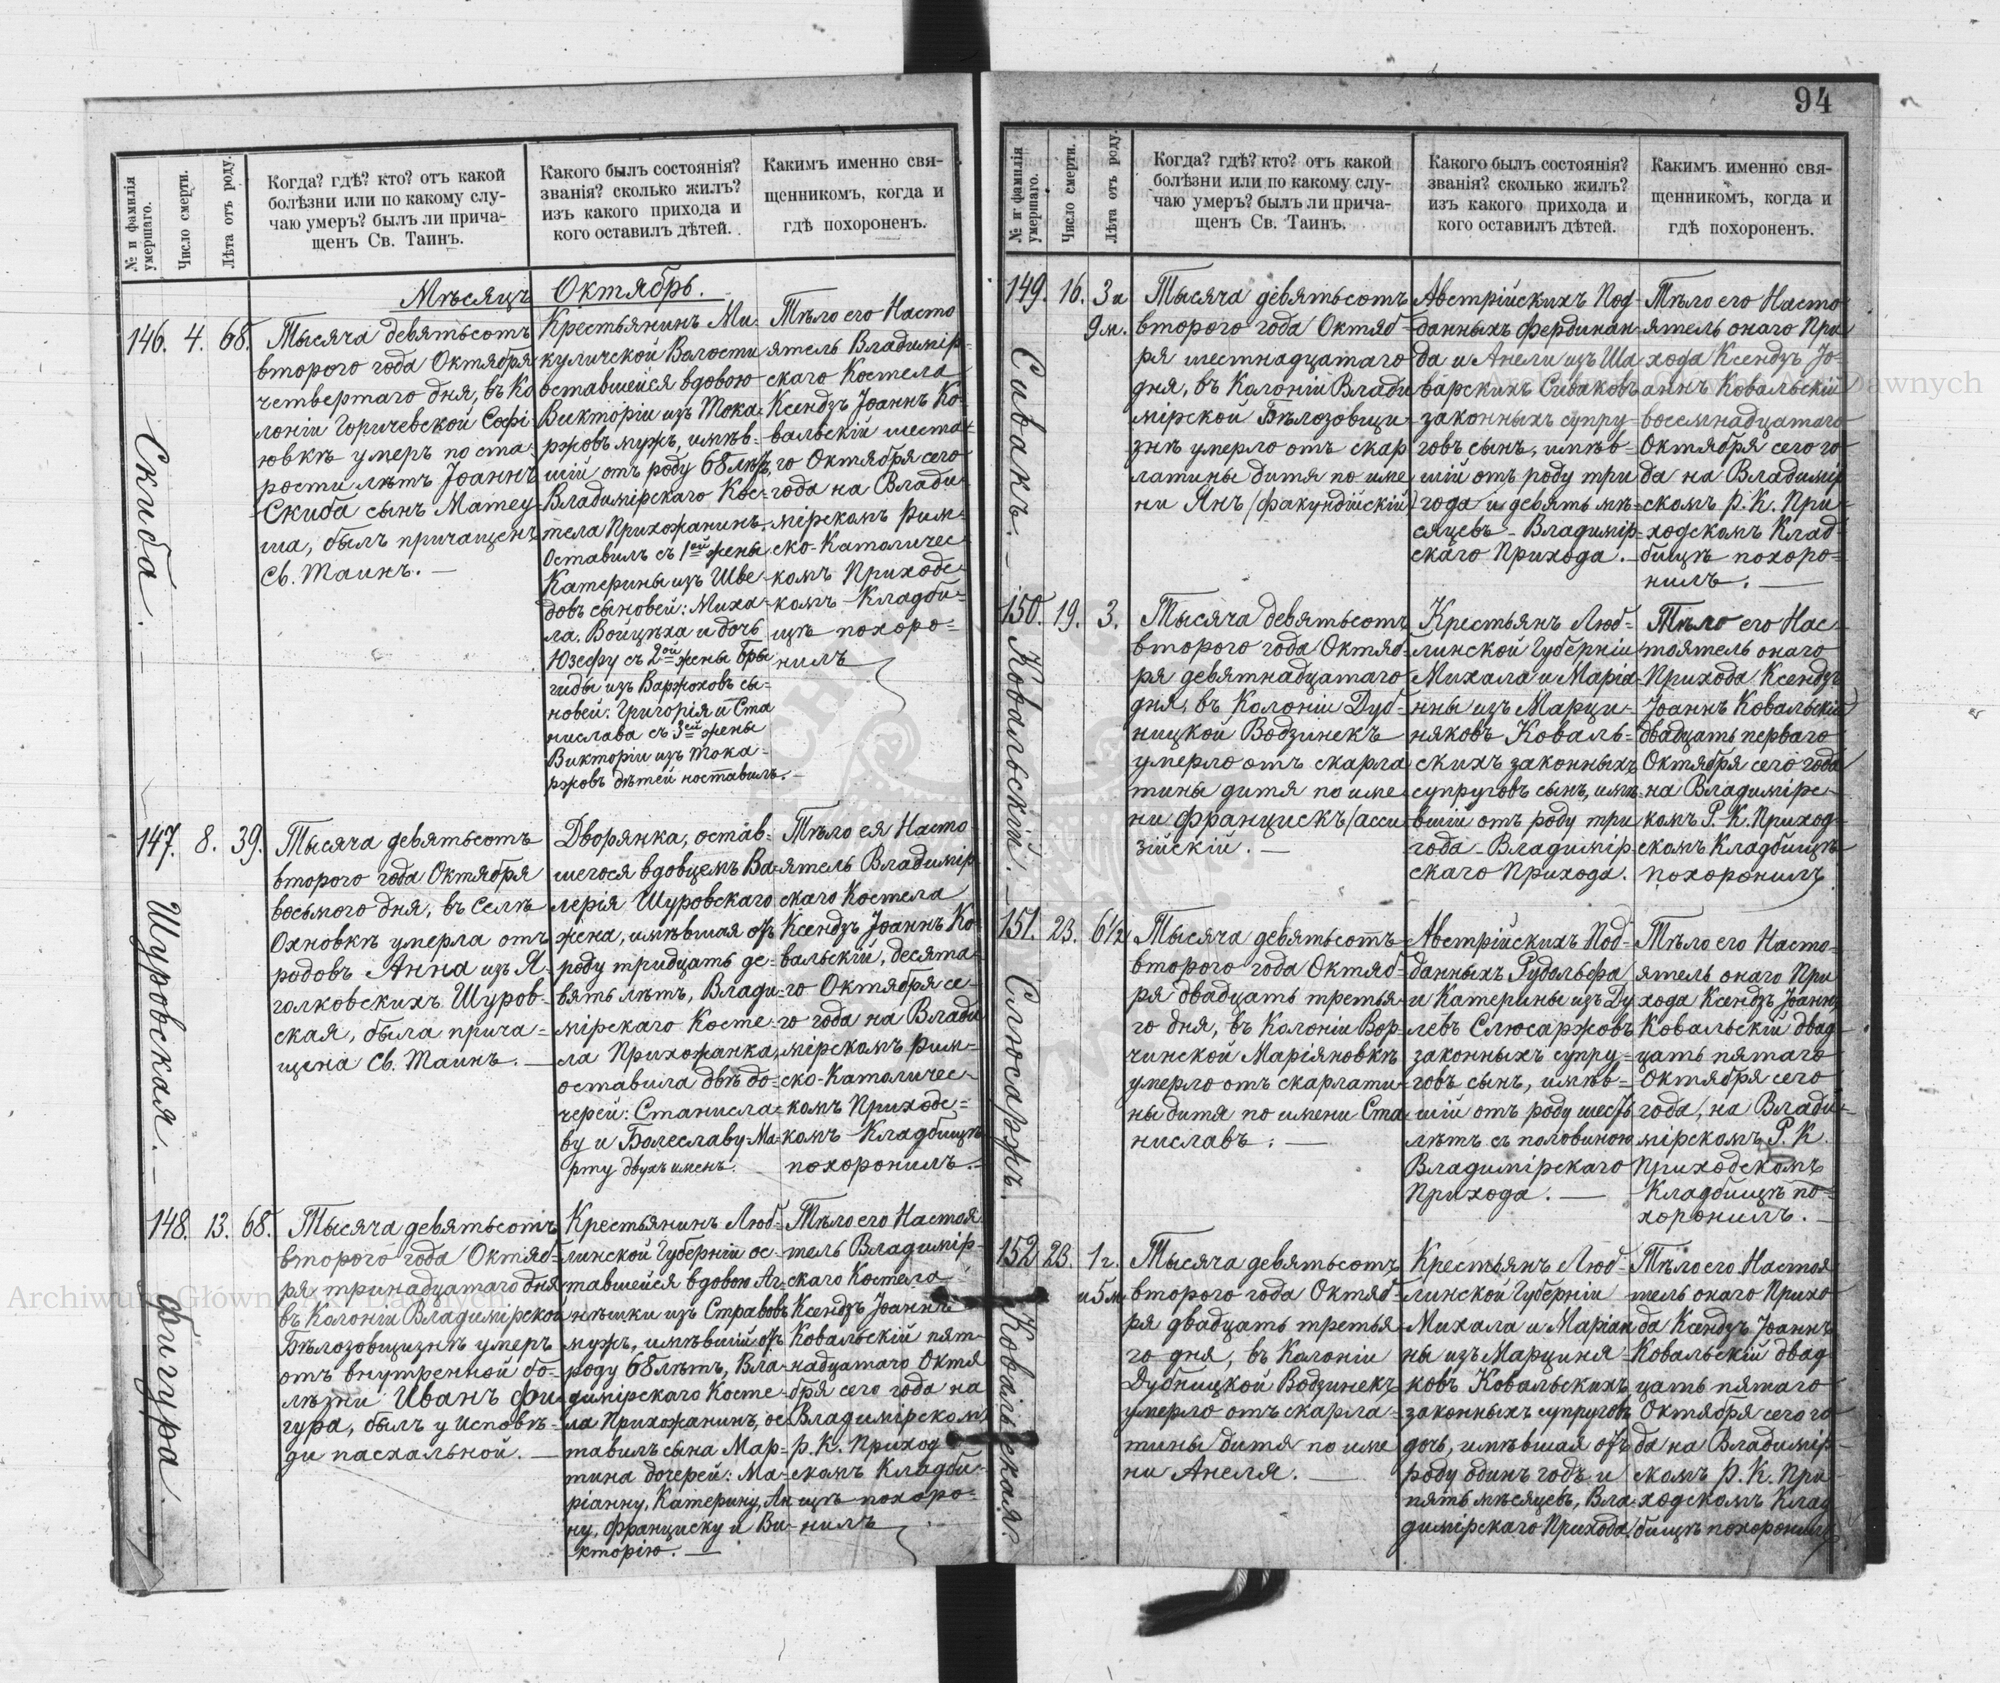 94
№ и фамилія умершаго.
Число смерти.
Лѣта отъ роду.
Когда? гдѣ? кто? отъ какой
болѣзни или по какому слу-
чаю умеръ? былъ ли прича-
щенъ Св. Таинъ.
Какого былъ состоянія?
званія? сколько жилъ?
изъ какого прихода и
кого оставилъ дѣтей.
Каким именно свя-
щенникомъ, когда и
гдѣ похороненъ.
Мѣсяцъ Октябрь.
146. 4. 68.
Скиба.
Тысяча девятьсотъ
втораго года Октября
четвертаго дня, въ Ко
лоніи Горичевской Софі
ювкѣ умеръ по ста-
рости лѣтъ Іоаннъ
Скиба сынъ Матеу-
ша, былъ причащенъ
Св. Таинъ. —
Крестьянинъ Ми-
куличской Волости
оставшейся вдовою
Викторіи изъ Тока-
ржовъ мужъ, имѣв-
шій отъ роду 68 лѣтъ,
Владимірскаго Кос-
тела Прихожанинъ.
Оставилъ съ 1ей жены
Катерины изъ Шве-
довъ сыновей: Миха-
ла, Войцѣха и дочь
Юзефу съ 2ой жены Бры
гиды изъ Варжоховъ сы-
новей: Григорія и Ста
нислава съ 3ей жены
Викторіи изъ Тока-
ржовъ дѣтей неоставилъ. —
Тѣло его Насто
ятель Владимір-
скаго Костела
Ксендзъ Іоаннъ Ко-
вальскій шеста-
го Октября сего
года на Влади-
мірскомъ Рим-
ско-Католичес-
комъ Приходс-
комъ Кладби-
щѣ похоро-
нилъ
147. 8. 39.
Шуровская. —
Тысяча девятьсотъ
втораго года Октября
восьмого дня, въ Селѣ
Охновкѣ умерла отъ
родовъ Анна изъ Я-
голковскихъ Шуров-
ская, была прича-
щена Св. Таинъ. —
Дворянка, остав-
шегося вдовцемъ Ва-
лерія Шуровскаго
жена, имѣвшая отъ
роду тридцать де-
вять лѣтъ, Влади-
мірскаго Косте-
ла Прихожанка,
оставила двѣ до-
черей: Станисла-
ву и Болеславу-Ма-
рту двухъ именъ.
Тѣло ея Насто-
ятель Владимір-
скаго Костела
Ксендзъ Іоаннъ Ко-
вальскій, десята-
го Октября се-
го года на Влади
мірскомъ Рим-
ско-Католичес-
комъ Приходс-
комъ Кладбищѣ
похоронилъ. —
148. 13. 68.
Фигура.
Тысяча девятьсотъ
втораго года Октяб-
ря тринадцатаго дня
въ Колоніи Владимірской
Бѣлозовщизнѣ умеръ
отъ внутренной бо-
лѣзни Иванъ Фи-
гура, былъ у Исповѣ-
ди пасхальной. —
Крестьянинъ Люб-
линской Губерніи ос-
тавшейся вдовою Аг-
нѣшки изъ Стравовъ
мужъ, имѣвшій отъ
роду 68 лѣтъ, Вла-
димірскаго Косте-
ла Прихожанинъ, ос-
тавилъ сына Мар-
тина дочерей: Ма-
ріанну, Катерину, Ан
ну, Франциску и Ви-
кторію. —
Тѣло его Настоя
тель Владимір-
скаго Костела
Ксендзъ Іоаннъ
Ковальскій пят-
надцатаго Октя
бря сего года на
Владимірском
р. К. Приход
скомъ Кладби-
щѣ похоро-
нилъ
№ и фамилія умершаго.
Число смерти.
Лѣта отъ роду.
Когда? гдѣ? кто? отъ какой
болѣзни или по какому слу-
чаю умеръ? былъ ли прича-
щенъ Св. Таинъ.
Какого былъ состоянія?
званія? сколько жилъ?
изъ какого прихода и
кого оставилъ дѣтей.
Каким именно свя-
щенникомъ, когда и
гдѣ похороненъ.
149. 16. 3 и
9 м.
Сивакъ. —
Тысяча девятьсотъ
втораго года Октяб-
ря шестнадцатаго
дня, въ Колоніи Влади
мірской Бѣлозовщи-
знѣ умерло отъ скар
латины дитя по име
ни Янъ (факундійскій)
Австрійскихъ Под-
данныхъ Фердинан-
да и Анели изъ Ша
варскихъ Сиваковъ
законныхъ супру-
говъ сынъ, имѣв-
шій отъ роду три
года и девять мѣ-
сяцевъ - Владимір-
скаго Прихода. —
Тѣло его Насто
ятель онаго При
хода Ксендзъ Іо-
аннъ Ковальскій
восемнадцатаго
Октября сего го
да на Владимір
скомъ Р. К. При-
ходскомъ Клад-
бищѣ похоро-
нилъ. —
150. 19. 3.
Ковальскій. —
Тысяча девятьсотъ
втораго года Октяб-
ря девятнадцатаго
дня, въ Колоніи Дуб-
ницкой Водзинекъ
умерло отъ скарла
тины дитя по име
ни Францискъ (асси
зійскій. —
Крестьянъ Люб-
линской Губерніи
Михала и Маріа-
нны изъ Марци-
няковъ Коваль-
скихъ законныхъ
супруговъ сынъ, имѣ-
вшій отъ роду три
года - Владимір-
скаго Прихода.
Тѣло его Нас-
тоятель онаго
Прихода Ксендзъ
Іоаннъ Ковальскій
двадцать перваго
Октября сего года
на Владимірс-
комъ Р. К. Приход-
скомъ Кладбищѣ
похоронилъ
151. 23. 6½
Слюсаржъ.
Тысяча девятьсотъ
втораго года Октяб-
ря двадцать третья-
го дня, въ Колоніи Вор-
чинской Маріяновкѣ
умерло отъ скарлати-
ны дитя по имени Ста
ниславъ. —
Австрійскихъ Под-
данныхъ Рудольфа
и Катерины изъ Ду
левъ Слюсаржовъ
законныхъ супру-
говъ сынъ, имѣв-
шій отъ роду шесть
лѣтъ съ половиною
Владимірскаго
Прихода. —
Тѣло его Насто-
ятель онаго При
хода Ксендзъ Іоаннъ
Ковальскій двад-
цать пятаго
Октября сего
года, на Влади-
мірскомъ Р. К.
Приходскомъ
Кладбищѣ по-
хоронилъ. —
152 23. 1 г.
и 5 м.
Ковальская.
Тысяча девятьсотъ
втораго года Октяб-
ря двадцать третья-
го дня, въ Колоніи
Дубницкой Водзинекъ
умерло отъ скарла-
тины дитя по име
ни Анеля. —
Крестьянъ Люб-
линской Губерніи
Михала и Маріан
ны изъ Марциня-
ковъ Ковальскихъ
законныхъ супруговъ
дочь, имѣвшая отъ
роду одинъ годъ и
пять мѣсяцевъ, Вла-
димірскаго Прихода
Тѣло его Настоя
тель онаго Прихо
да Ксендзъ Іоаннъ
Ковальскій двад
цать пятаго
Октября сего го
да на Владимір-
скомъ Р. К. При-
ходскомъ Клад
бищѣ похоронилъ